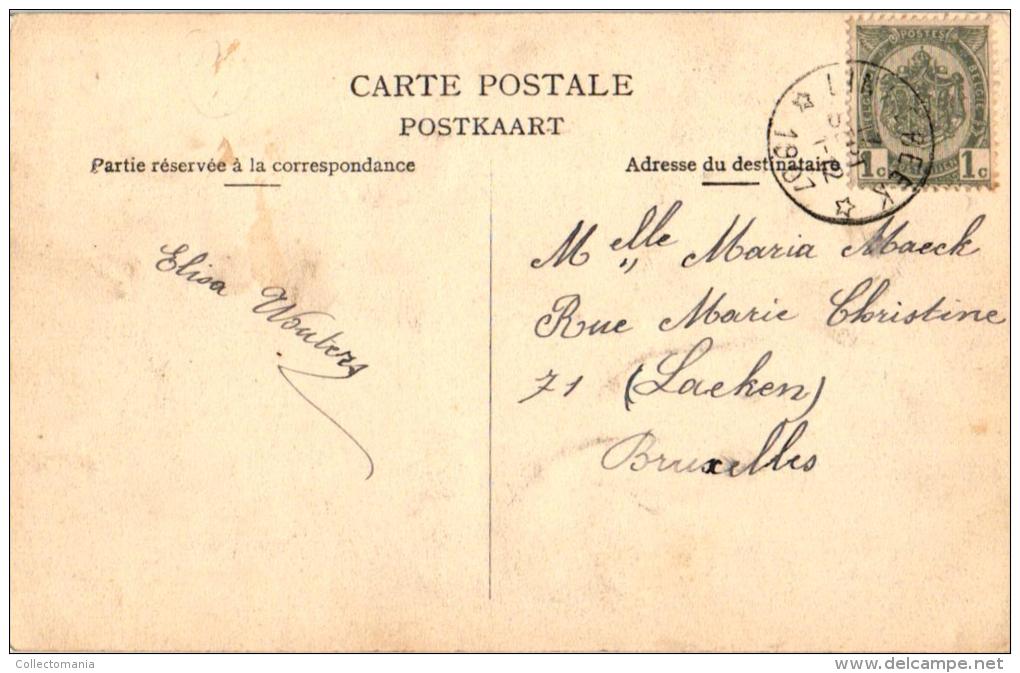 CARTE POSTALE
POSTKAART
Partie réservée à la correspondance
Adresse du destinataire
POSTES
1c 1c
1907
Elisa Wouters
Melle Maria Maeck
Rue Marie Christine
71 (Laeken)
Bruxelles
Collectomania
delcampe.net